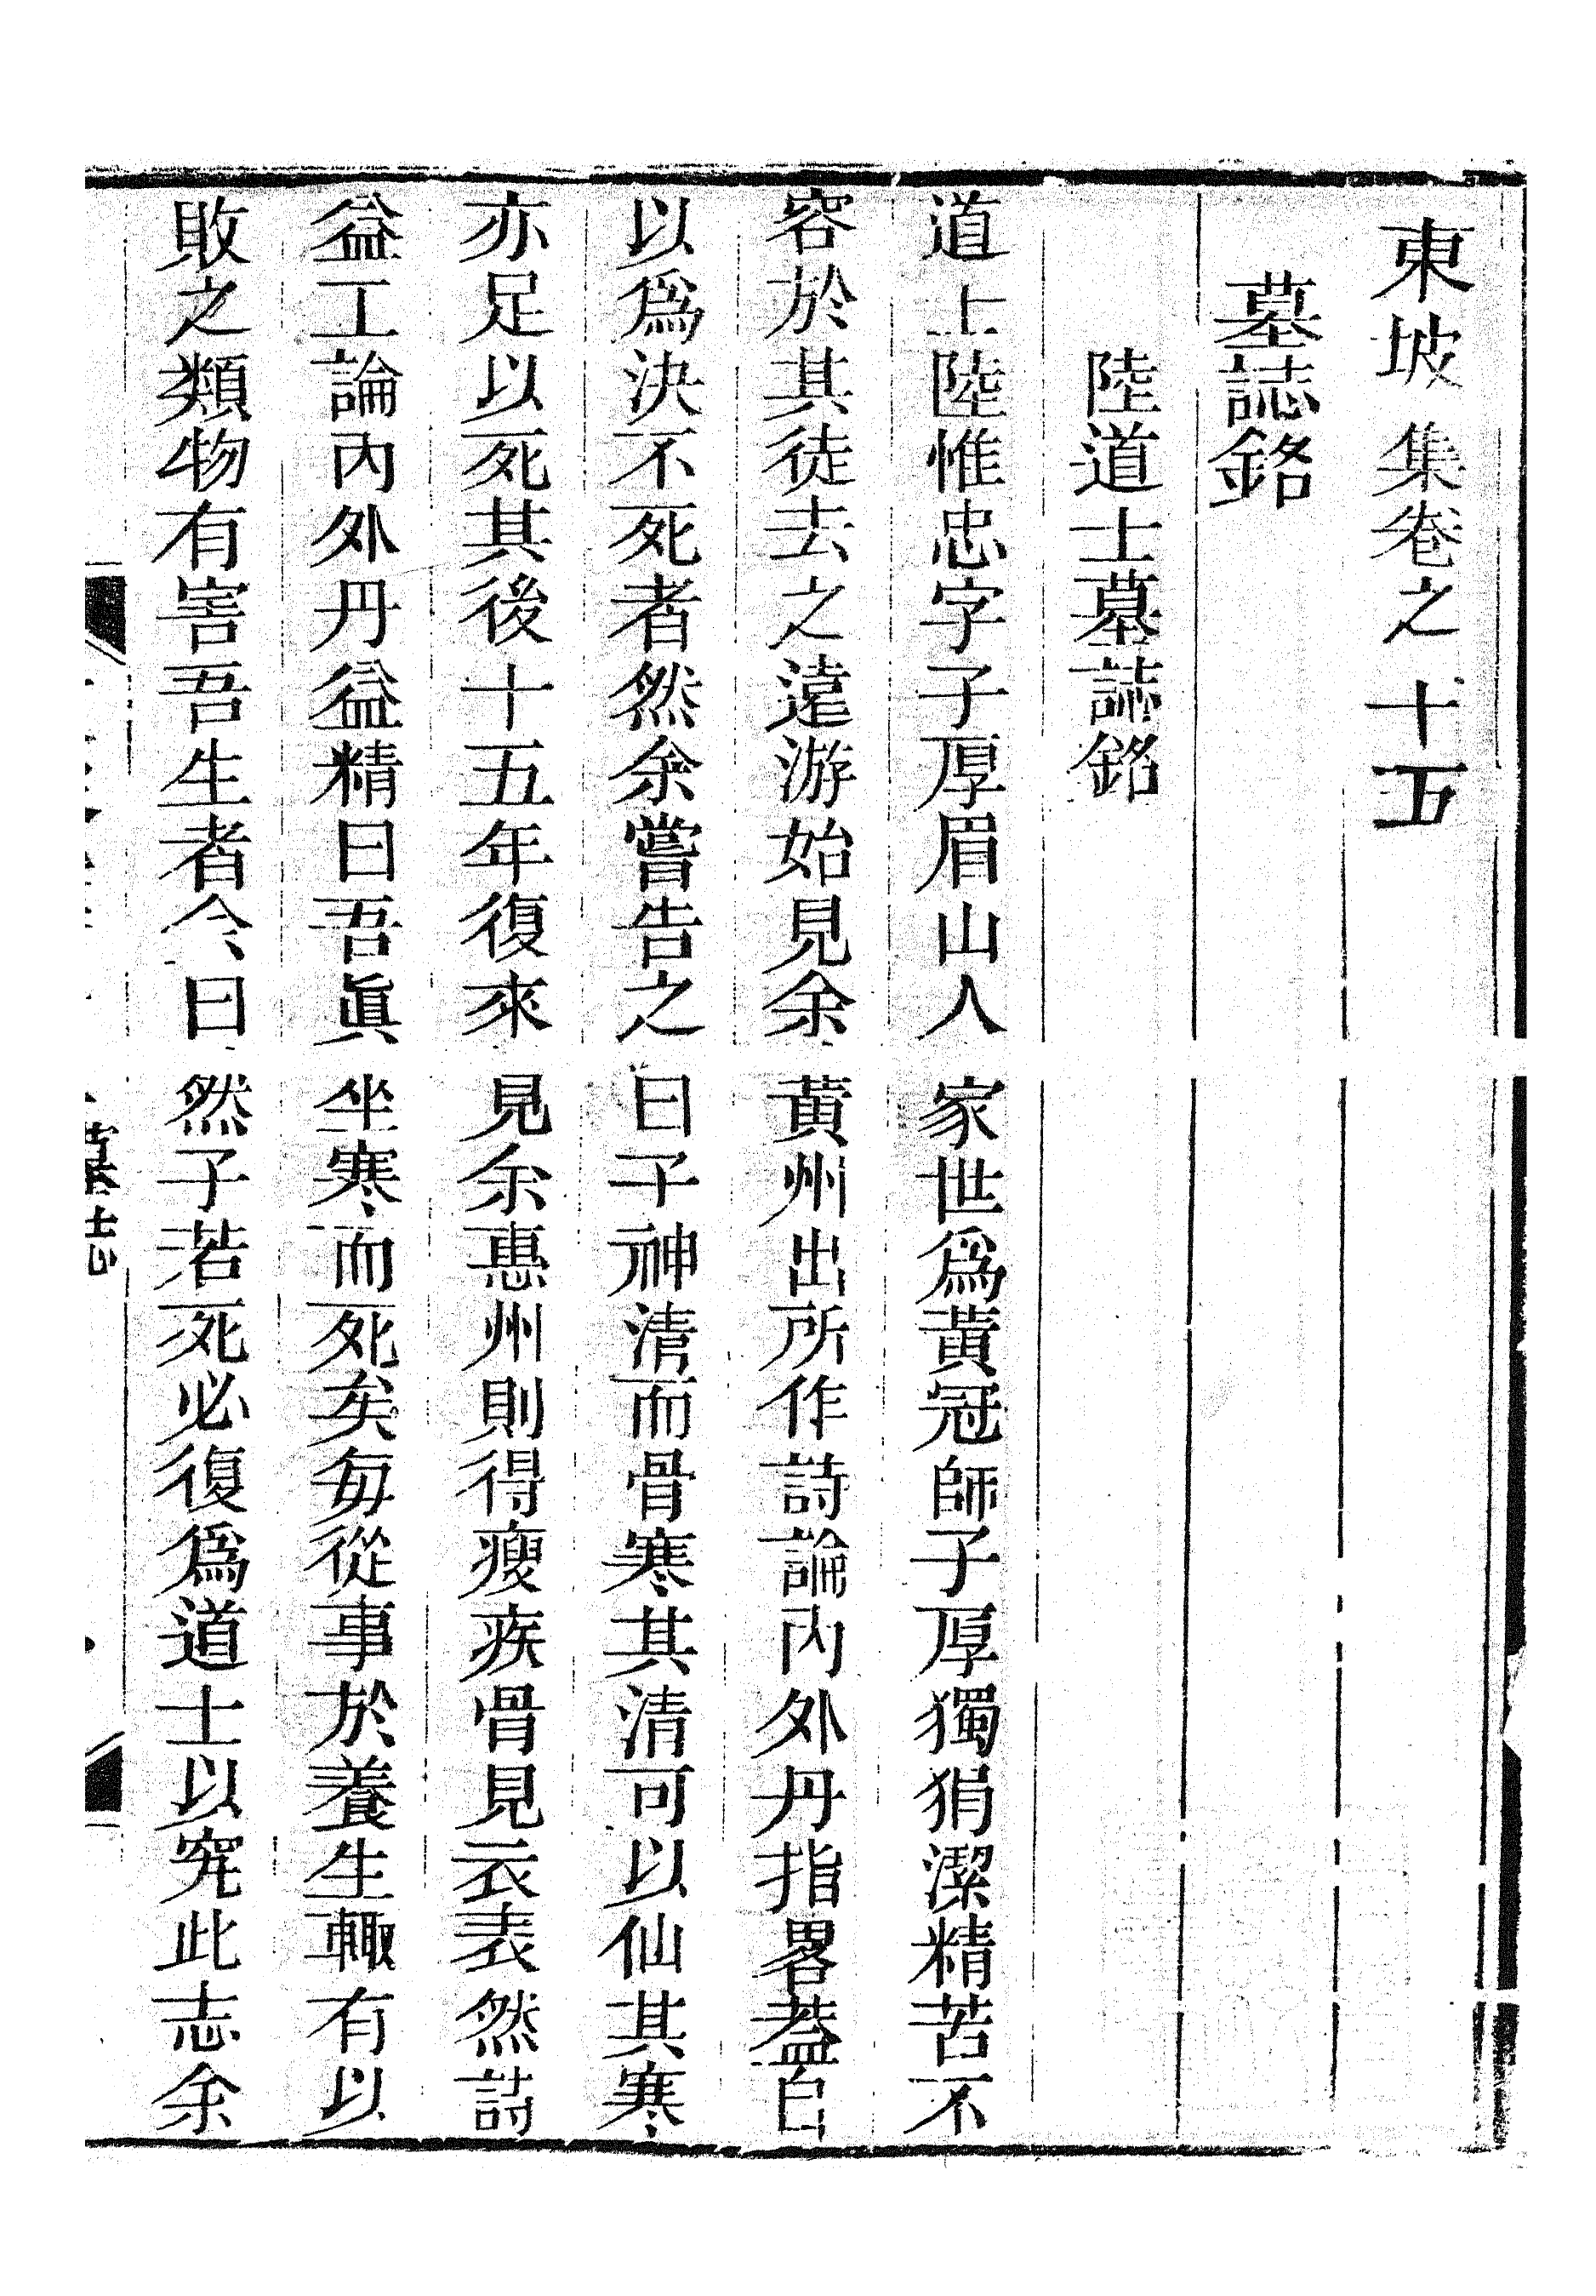 東坡集卷之十五
墓誌銘
陸道士墓誌銘
道士陸惟忠字子厚眉山人家世爲黃冠師子厚獨狷潔精苦不
容於其徒去之遠游始見余黃州出所作詩論內外丹指畧葢自
以爲決不死者然余嘗告之曰子神清而骨寒其清可以仙其寒
亦足以死其後十五年復來見余惠州則得瘦疾骨見衣表然詩
益工論內外丹益精曰吾眞坐寒而死矣每從事於養生輒有以
敗之類物有害吾生者余曰然子若死必復爲道士以究此志余
墓志